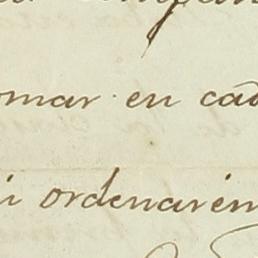 omar en cad
i ordenarèn